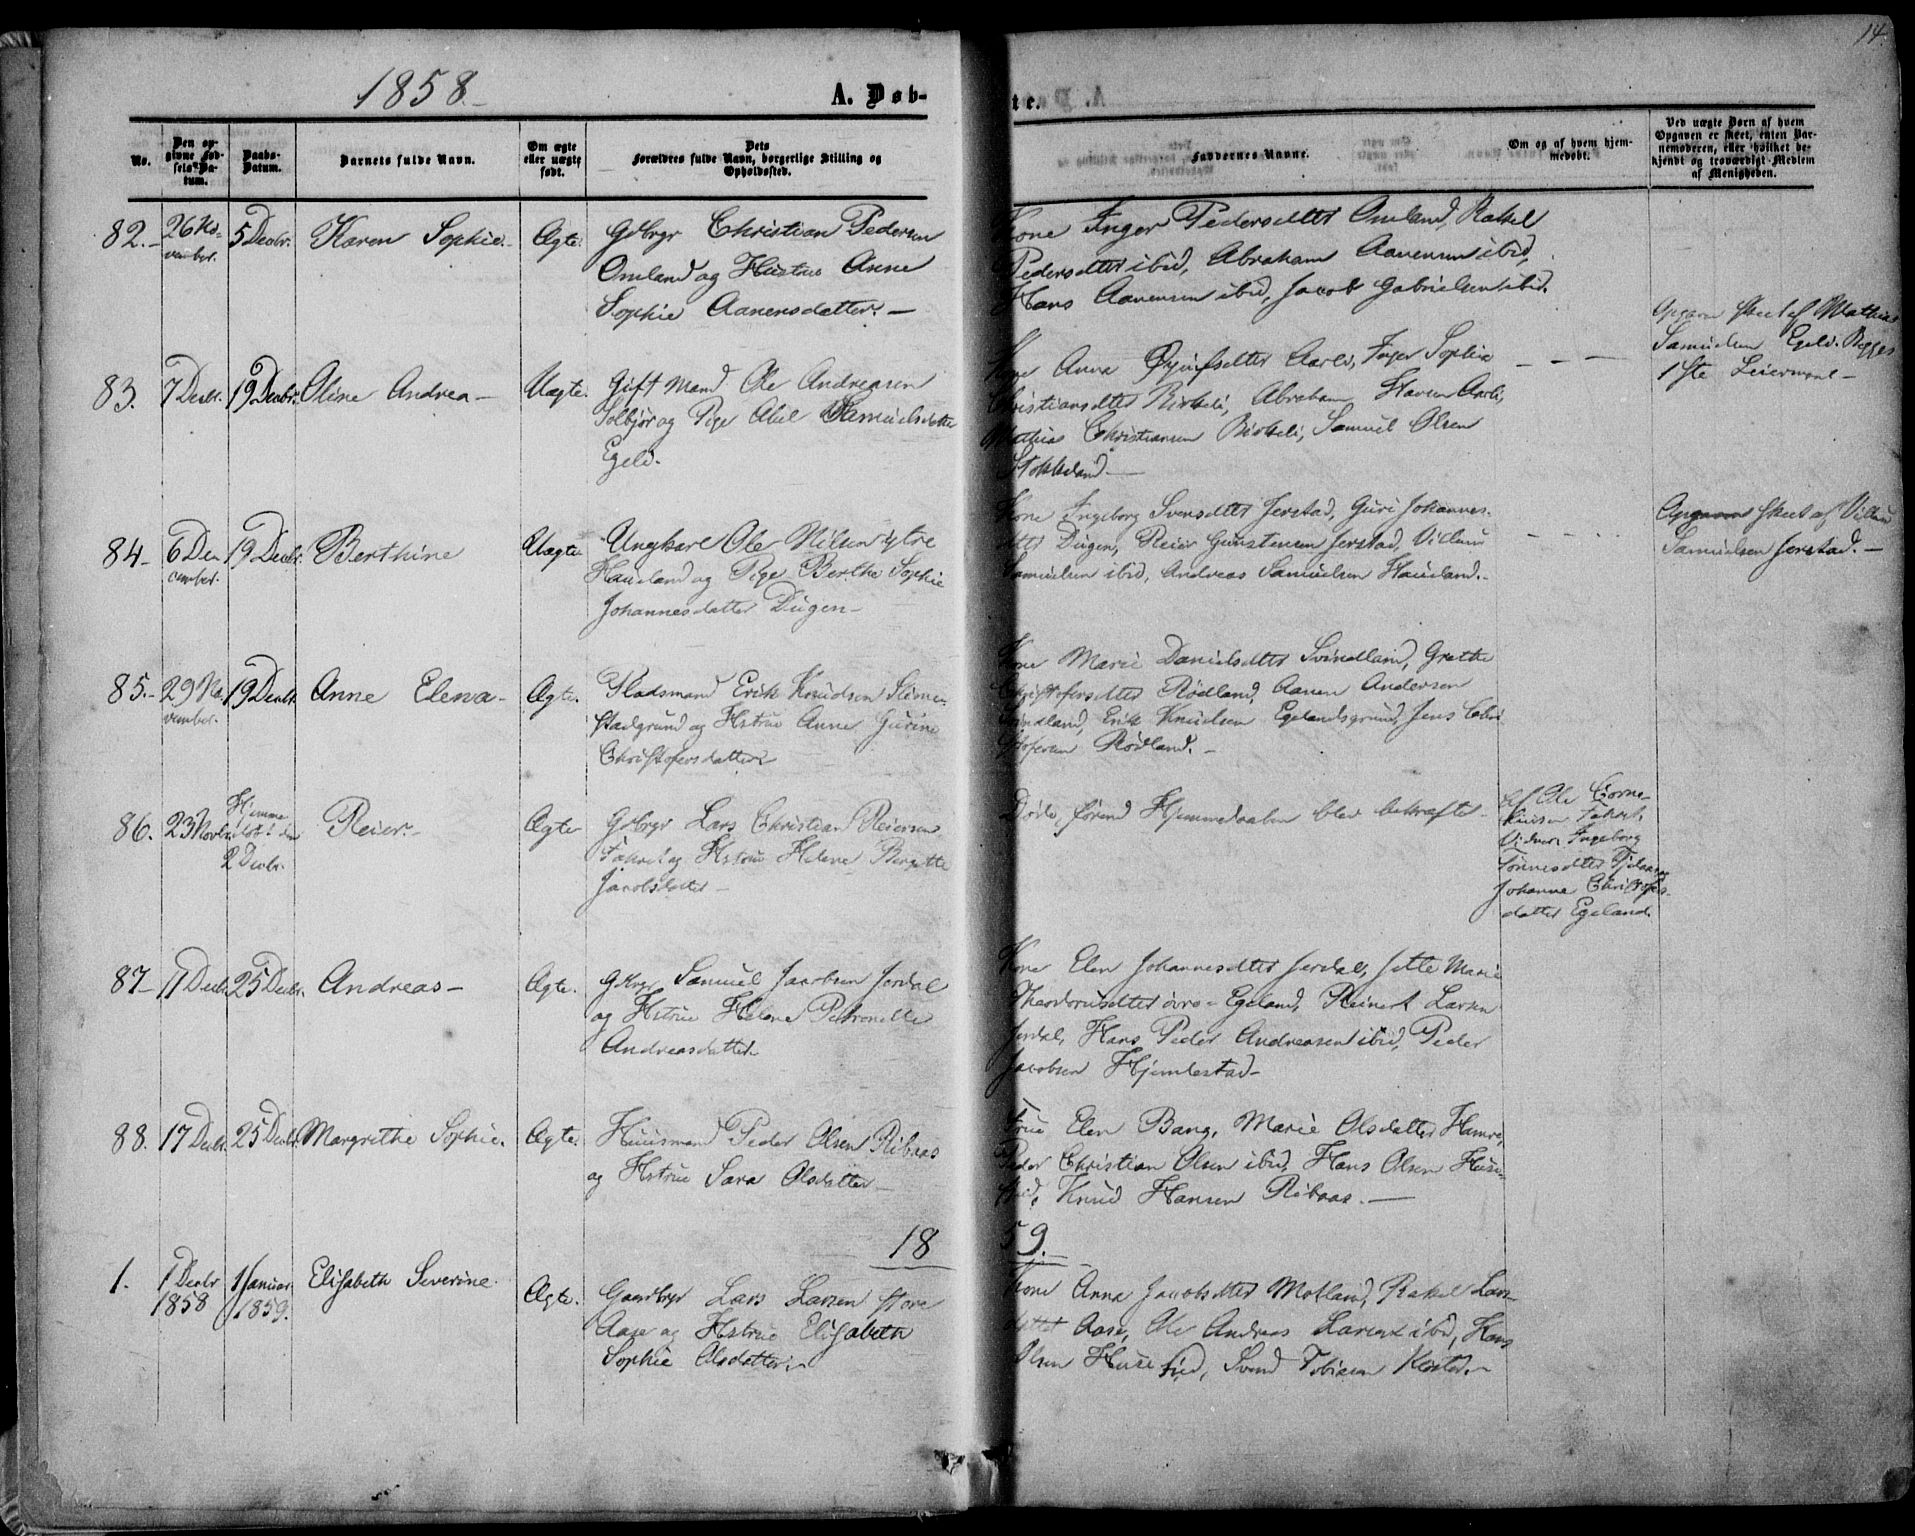 14.
1858
A. Døb-
te.
No.
Den op-
givne Fød-
sels-Da-
tum.
Daabs-
Datum.
Barnets fulde Navn.
Om ægte
eller uægte
født.
Dets
Forældres fulde Navn, borgerlige Stilling og
Opholdssted.
Faddernes Navne.
Om og af hvem hjem-
medøbt.
Ved uægte Børn af hvem
Opgaven er skeet, enten Bar-
nemoderen, eller hvilket be-
kjendt og troværdigt Medlem
af Menigheden.
82.
26 No-
vember.
5 Decbr.
Karen Sophie.
Ægte.
Gdbrgr Christian Pedersen
Omland og Hustru Anne
Sophie Aanensdatter.
Kone Inger Pedersdtter Omland, Rakel
Pedersdtter ibid, Abraham Aanensen ibid,
Hans Aanensen ibid, Jacob Gabrielsen ibid.
83.
7 Decbr.
19 Decbr.
Oline Andrea
Uægte.
Gift Mand Ole Andreasen
Solbjør og Pige Abel Samuelsdatter
Egeli.
Kone Anna Aarli, Inger Sophie
Christiansdtter Birkeli, Abraham Aarli,
Mathias Christiansen Birkeli, Samuel Olsen
Stokkeland.
Opgaven skeet af Mathias
Samuelsen Egeli. Begges
1ste Leiermaal
84
6 De-
cember.
19 Decbr.
Berthine
Uægte
Ungkarl Ole Nilsen ytre
Haueland og Pige Berthe Sophie
Johannesdatter Dugen
Kone Ingeborg Svensdtter Jerstad, Guri Johannes-
dtter Dugen, Reier Gunstensen Jerstad, Villum
Samuelsen ibid, Andreas Samuelsen Haueland.
Opgaven skeet af Villum
Samuelsen Jerstad.
85.
29 No-
vember.
19 Decbr.
Anne Elena
Ægte.
Pladsmand Erik Knudsen Slime-
stadgrund og Hstrue Anne Gurine
Christofersdatter
Kone Marie Danielsdtter Svindland, Grethe
Christofersdtter Rødland, Aanen Andersen
Svindland, Erik Knudsen Egelandsgrund, Jens Chri
stofersen Rødland.
86.
23 Novbr.
Hjemme
døbt den
2 Decbr.
Reier.
Ægte
Gdbrgr Lars Christian Reiersen
Fokset og Hstrue Helene Bergitte
Jacobsdatter
Døde, førend Hjemmedaaben blev bekræftet.
af Ole Corne-
liusen
Vidner: Ingeborg
Tønnesdtter
Johanne Christofers-
datter Egeland.
87
11 Decbr.
25 Decbr.
Andreas
Ægte.
Gdbrgr Samuel Jacobsen Jerdal
og Hstrue Helene Petronelle
Andreasdatter
Kone Elen Johannesdtter Jerdal, Jette Marie
Theodorusdtter øvre Egeland, Reinert Larsen
Jerdal, Hans Peder Andreasen ibid, Peder
Jacobsen Hjemlestad
88.
17 Decbr.
25 Decbr.
Margrethe Sophie.
Ægte.
Huusmand Peder Olsen Ribaas
og Hstrue Sara Olsdatter
Frue Elen Bang, Marie Olsdatter Hamre,
Peder Christian Olsen ibid, Hans Olsen Huse
bid, Knud Hansen Ribaas.
18
59.
1.
1 Decbr
1858
1 Januar
1859.
Elisabeth Severine.
Ægte.
Gaardbgr Lars Larsen store
Aase og Hstrue Elisabeth
Sophie Olsdatter
Kone Anna Jacobsdtter Motland, Rakel Lars-
dtter Aase, Ole Andreas Larsen ibid, Hans
Olsen Huse bid, Svend Tobiasen